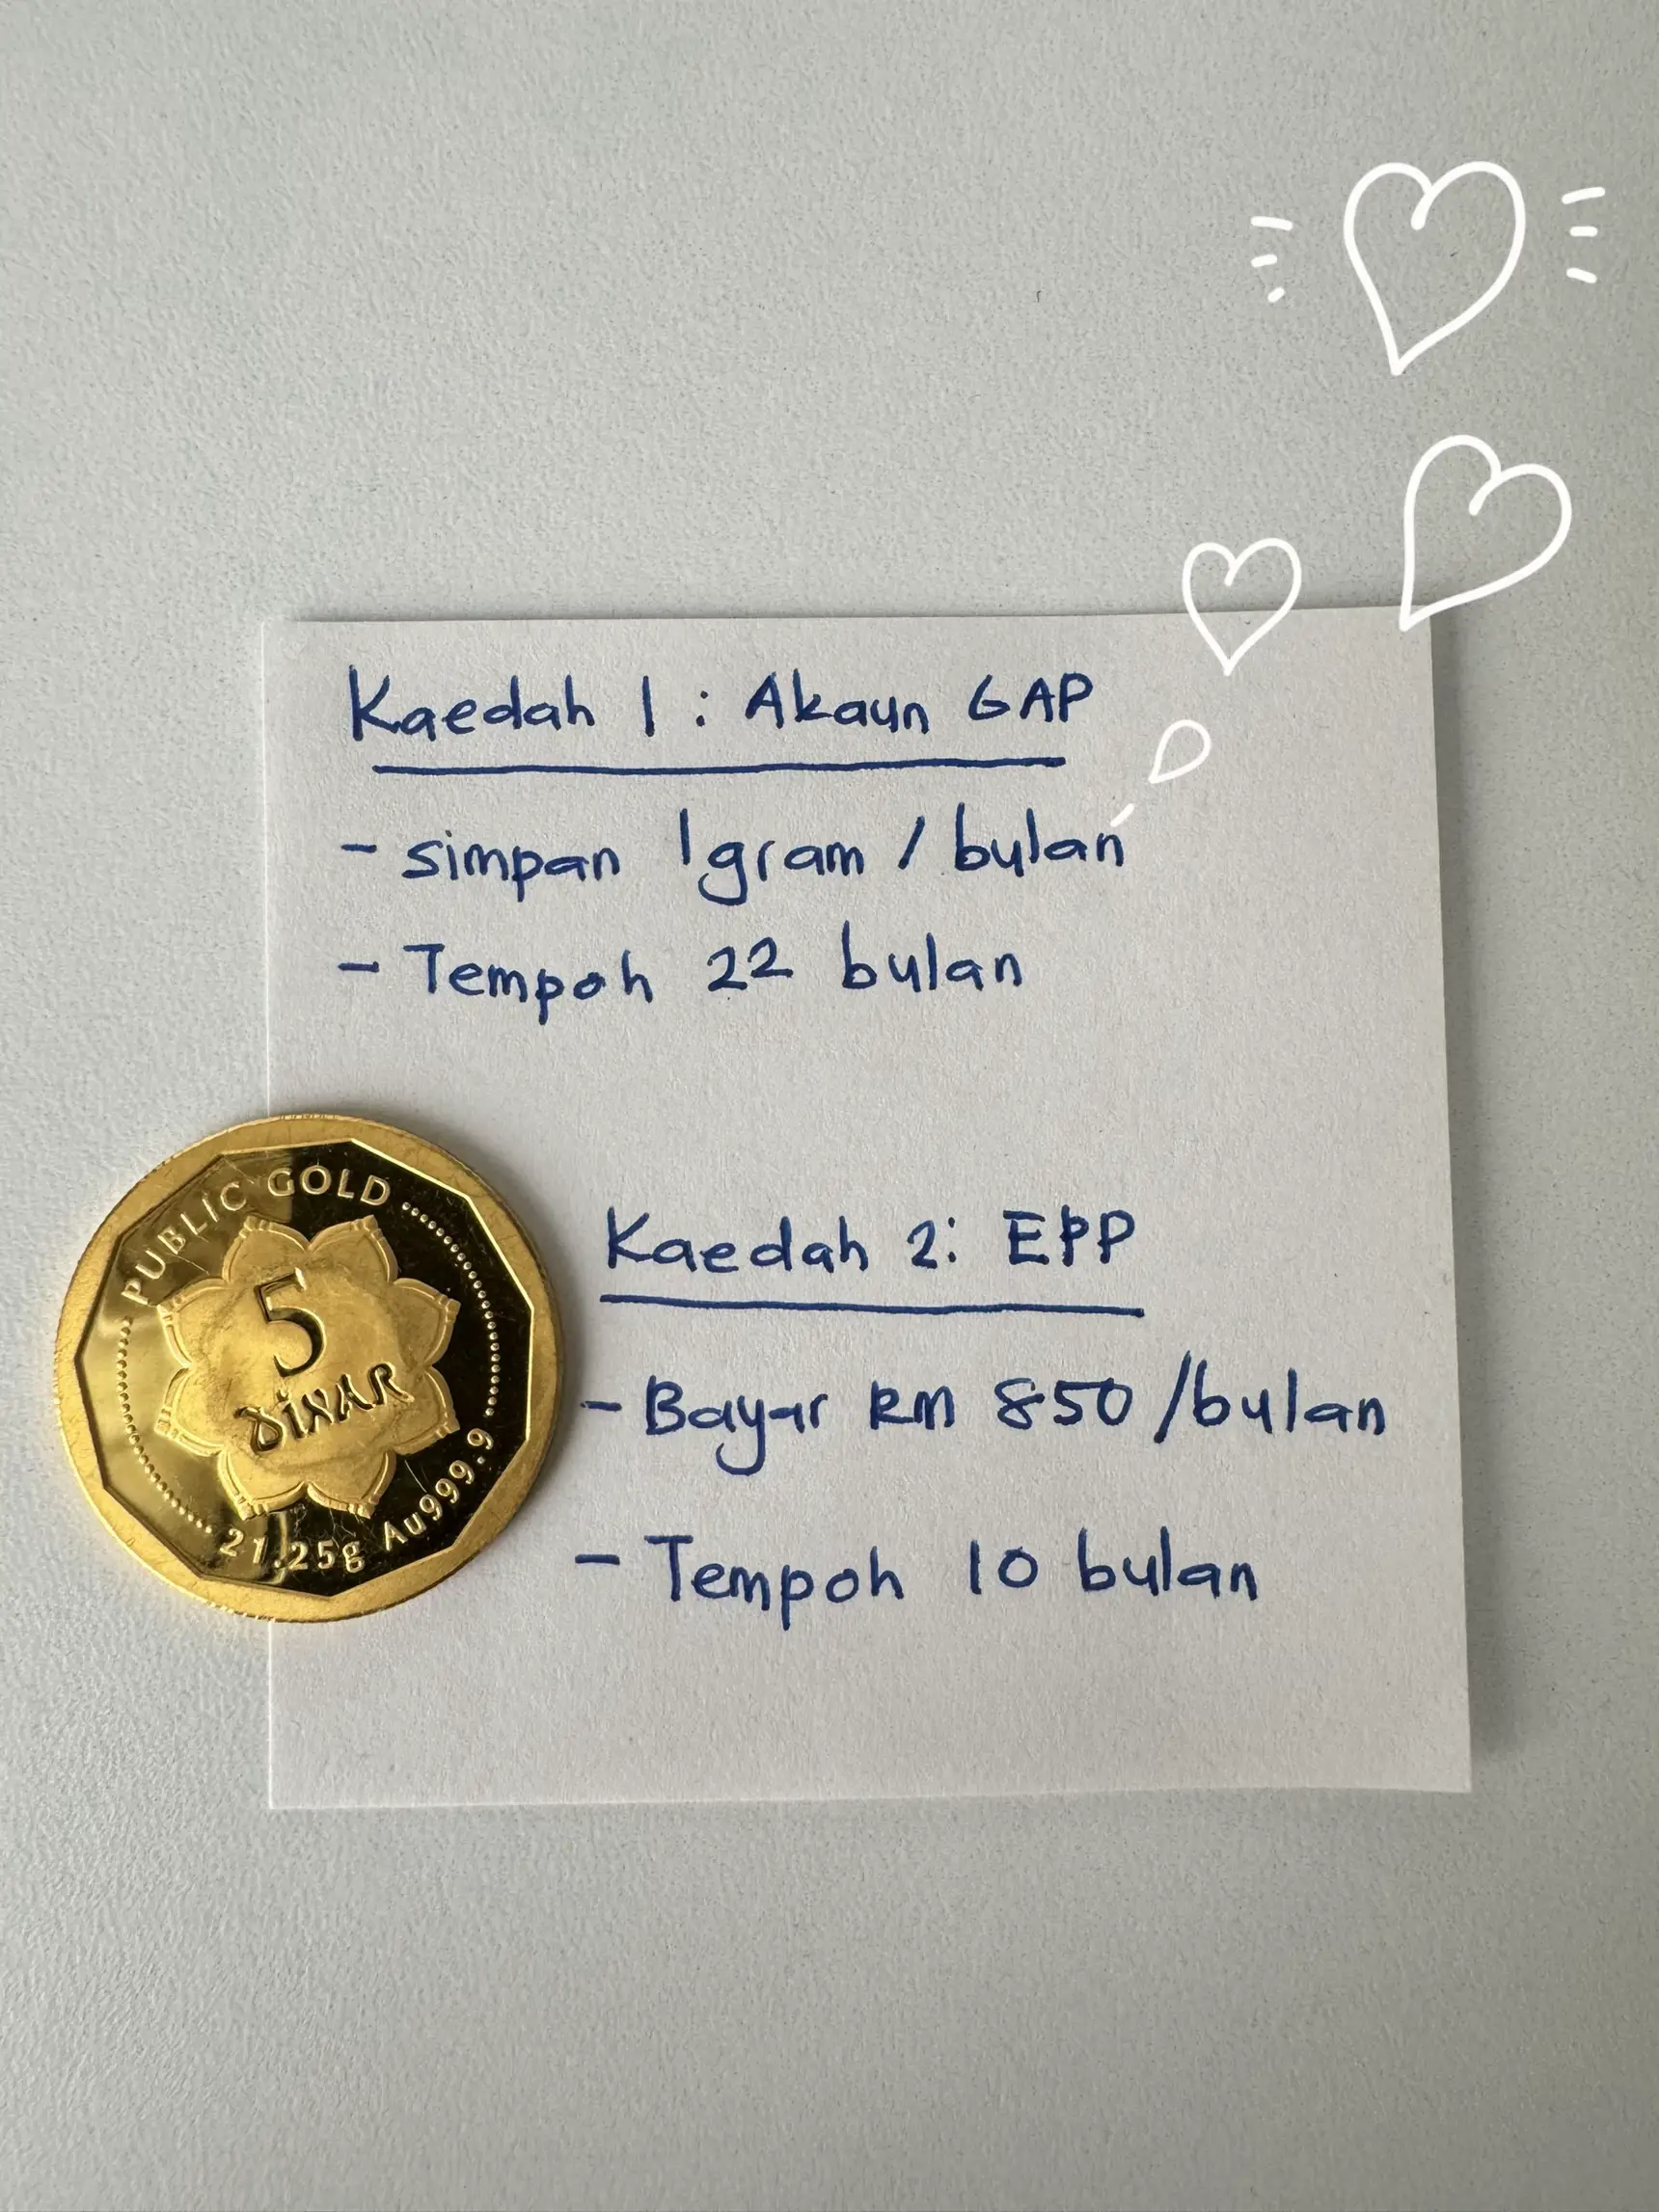 Kaedah 1 : Akaun GAP
- simpan 1gram / bulan
- Tempoh 22 bulan
PUBLIC GOLD
5
DINAR
21.25g Au999.9
Kaedah 2: EPP
- Bayar RM 850 /bulan
- Tempoh 10 bulan